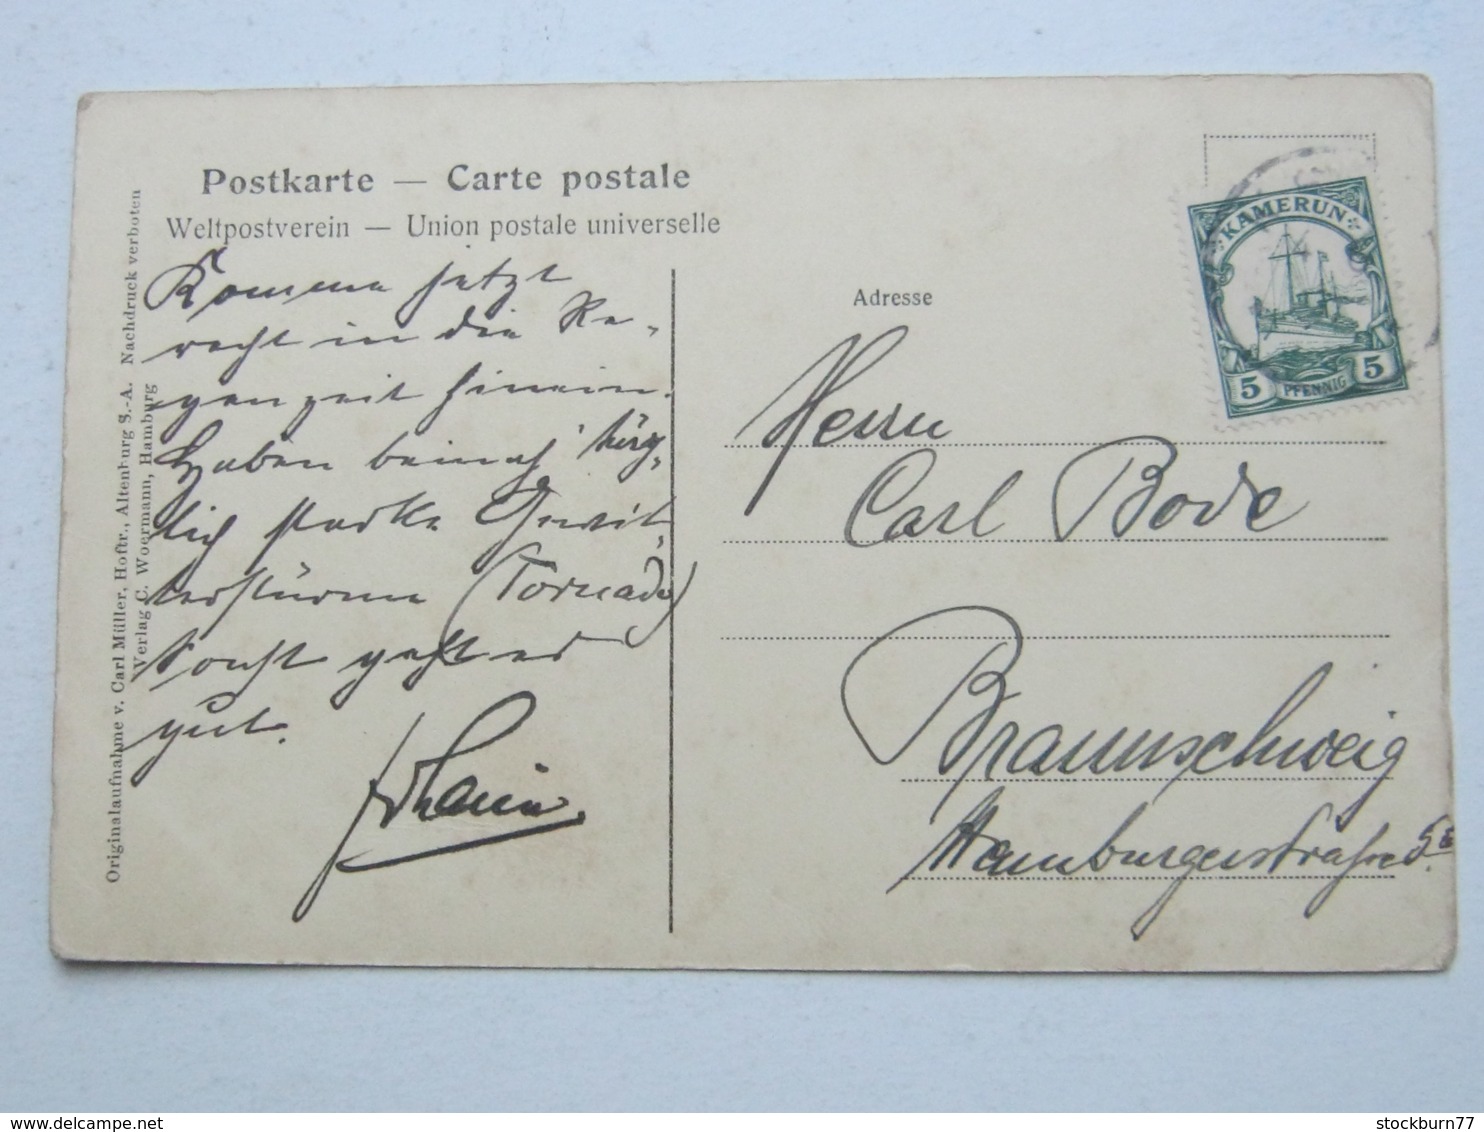 Postkarte — Carte postale
Weltpostverein — Union postale universelle
Komme jetzt
recht in die Re-
genzeit hinein.
Haben beinah täg-
lich starke Gewit-
terstürme (Tornado)
Sonst geht es
gut.
Originalaufnahme v. Carl Müller, Hoftr., Altenburg S.-A. Nachdruck verboten
Verlag C. Woermann, Hamburg
Adresse
Herrn
Carl Bode
Braunschweig
Hamburgerstraße
KAMERUN
5 PFENNIG 5
stockburn77